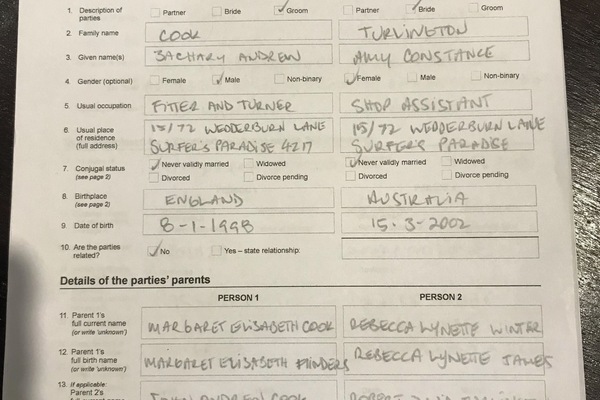 1. Description of parties Partner Bride Groom Partner Bride Groom
2. Family name COOK TURLINGTON
3. Given name(s) ZACHARY ANDREW AMY CONSTANCE
4. Gender (optional) Female Male Non-binary Female Male Non-binary
5. Usual occupation FITTER AND TURNER SHOP ASSISTANT
6. Usual place of residence (full address) 15/72 WEDDERBURN LANE 15/72 WEDDERBURN LANE
SURFER'S PARADISE 4217 SURFER'S PARADISE
7. Conjugal status (see page 2) Never validly married Widowed Never validly married Widowed
Divorced Divorce pending Divorced Divorce pending
8. Birthplace (see page 2) ENGLAND AUSTRALIA
9. Date of birth 8-1-1998 15.3-2002
10. Are the parties related? No Yes – state relationship:
Details of the parties' parents
PERSON 1 PERSON 2
11. Parent 1's full current name (or write 'unknown') MARGARET ELISABETH COOK REBECCA LYNETTE WINTER
12. Parent 1's full birth name (or write 'unknown') MARGARET ELISABETH FLINDERS REBECCA LYNETTE JAMES
13. If applicable: Parent 2's JOHN ANDREW COOK ROBERT